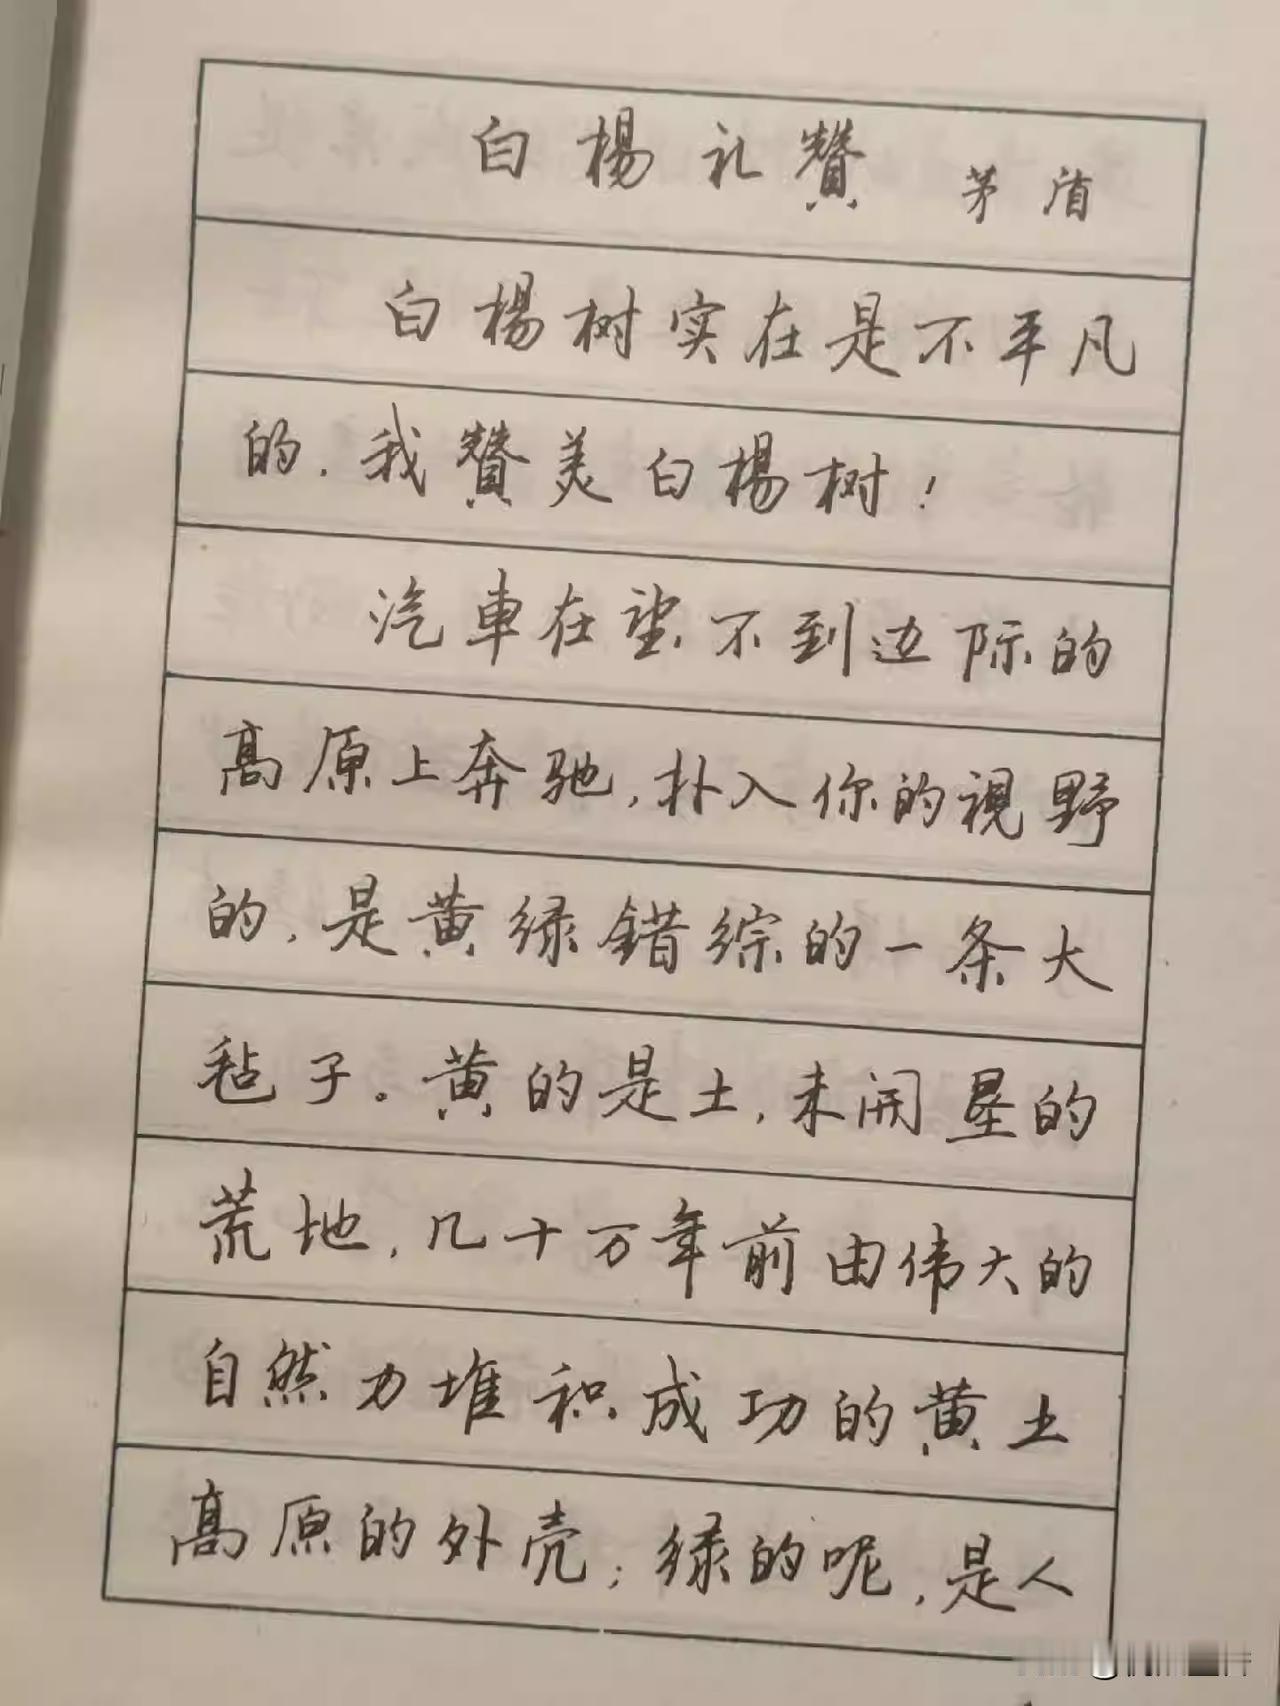 白楊礼贊 茅盾
白楊树实在是不平凡
的，我贊美白楊树！
汽車在望不到边际的
高原上奔驰，扑入你的視野
的，是黄绿错综的一条大
毡子。黄的是土，未开垦的
荒地，几十万年前由伟大的
自然力堆积成功的黄土
高原的外壳；绿的呢，是人